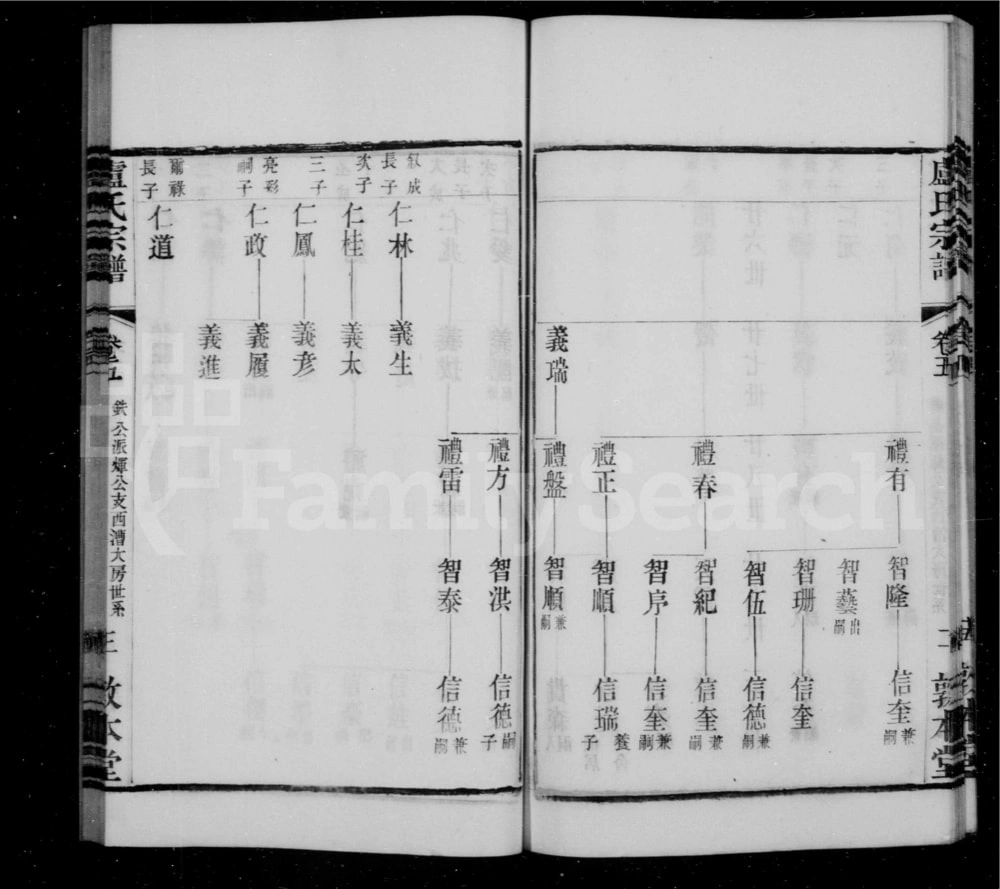 盧氏宗譜
卷五
二 敦本堂
義瑞
禮有
禮春
禮正
禮盤
智隆
智藝 出嗣
智珊
智伍
智紀
智序
智順
智順 兼嗣
信奎 兼嗣
信奎
信德 兼嗣
信奎 兼嗣
信奎 兼嗣
信瑞 養子
叙成長子 仁林
次子 仁桂
三子 仁鳳
亮彩嗣子 仁政
爾祿長子 仁道
義生
義太
義彥
義履
義進
禮方
禮雷
智洪
智泰
信德 嗣子
信德 兼嗣
盧氏宗譜
卷五
公派煇公支西漕大房世系
三 敦本堂
FamilySearch